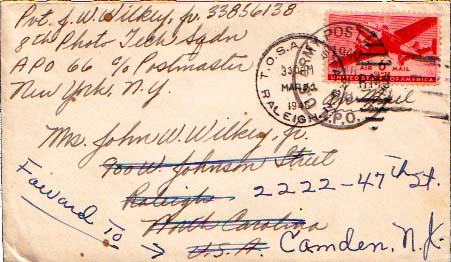 Pvt. J. W. Wilkey, Jr. 33856138
8th Photo Tech Sqdn
APO 66 c/o Postmaster
New York, N.Y.
ARMY POST
A.P.O.
RALEIGH
AIR MAIL
UNITED STATES OF AMERICA
Air Mail
Mrs. John W. Wilkey, Jr.
900 W. Johnson Street
Raleigh
North Carolina
U.S.A.
Forward To
2222-47th St.
Camden, N.J.